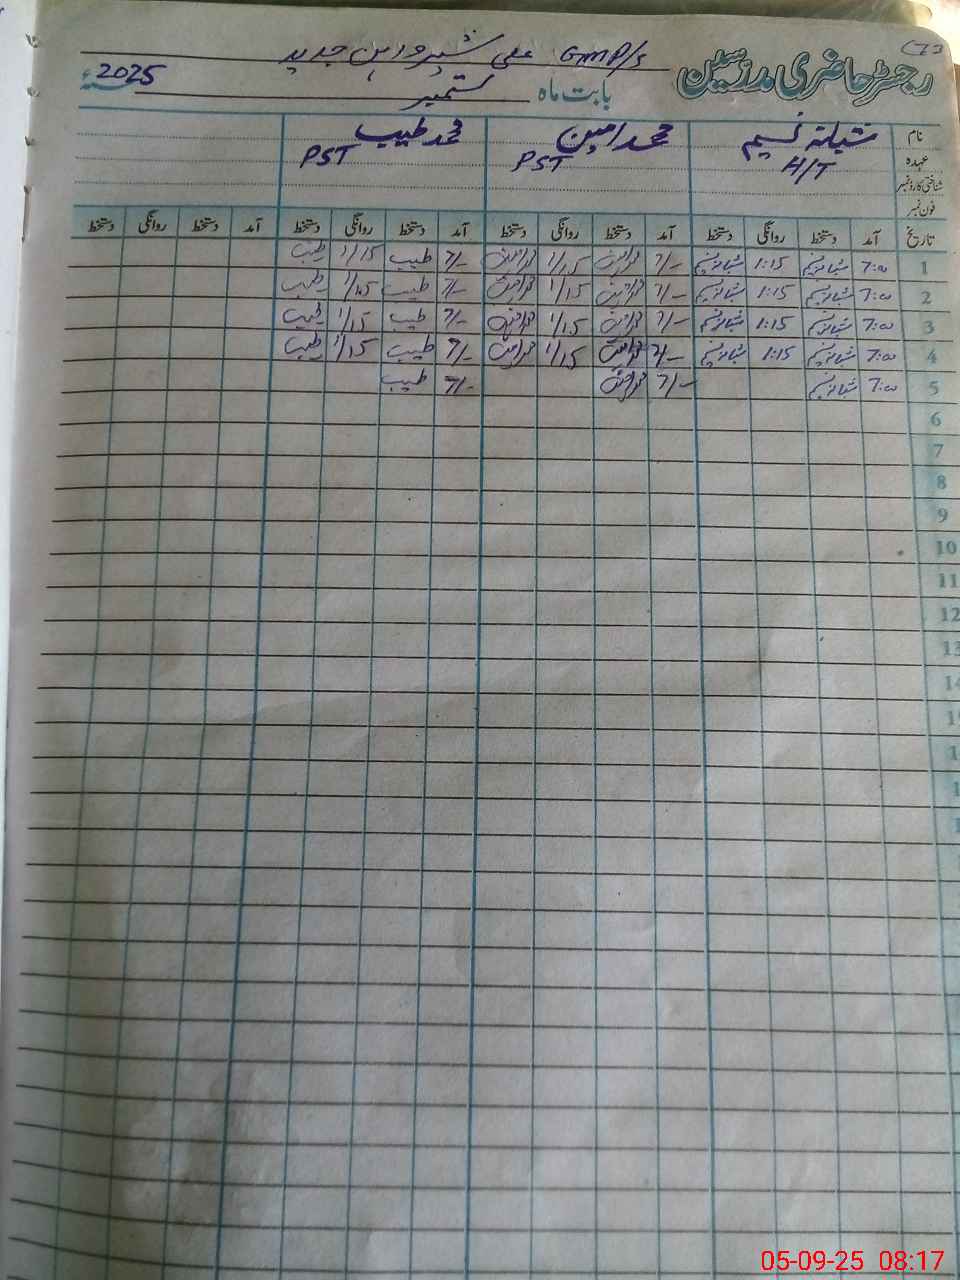 رجسٹر حاضری مدرسین GMP/S علی شیر واہن جدید
بابت ماہ ستمبر سنہ 2025ء
نام شبانہ نسیم محمد امین محمد طیب
عہدہ H/T PST PST
شناختی کارڈ نمبر
فون نمبر
تاریخ آمد دستخط روانگی دستخط آمد دستخط روانگی دستخط آمد دستخط روانگی دستخط آمد دستخط روانگی دستخط
1 7:00 شبانہ نسیم 1:15 شبانہ نسیم 7/- محمد امین 1/15 محمد امین 7/- طیب 1/15 طیب
2 7:00 شبانہ نسیم 1:15 شبانہ نسیم 7/- محمد امین 1/15 محمد امین 7/- طیب 1/15 طیب
3 7:00 شبانہ نسیم 1:15 شبانہ نسیم 7/- محمد امین 1/15 محمد امین 7/- طیب 1/15 طیب
4 7:00 شبانہ نسیم 1:15 شبانہ نسیم 7/- محمد امین 1/15 محمد امین 7/- طیب 1/15 طیب
5 7:00 شبانہ نسیم 7/- محمد امین 7/- طیب
6
7
8
9
10
11
12
13
14
05-09-25 08:17